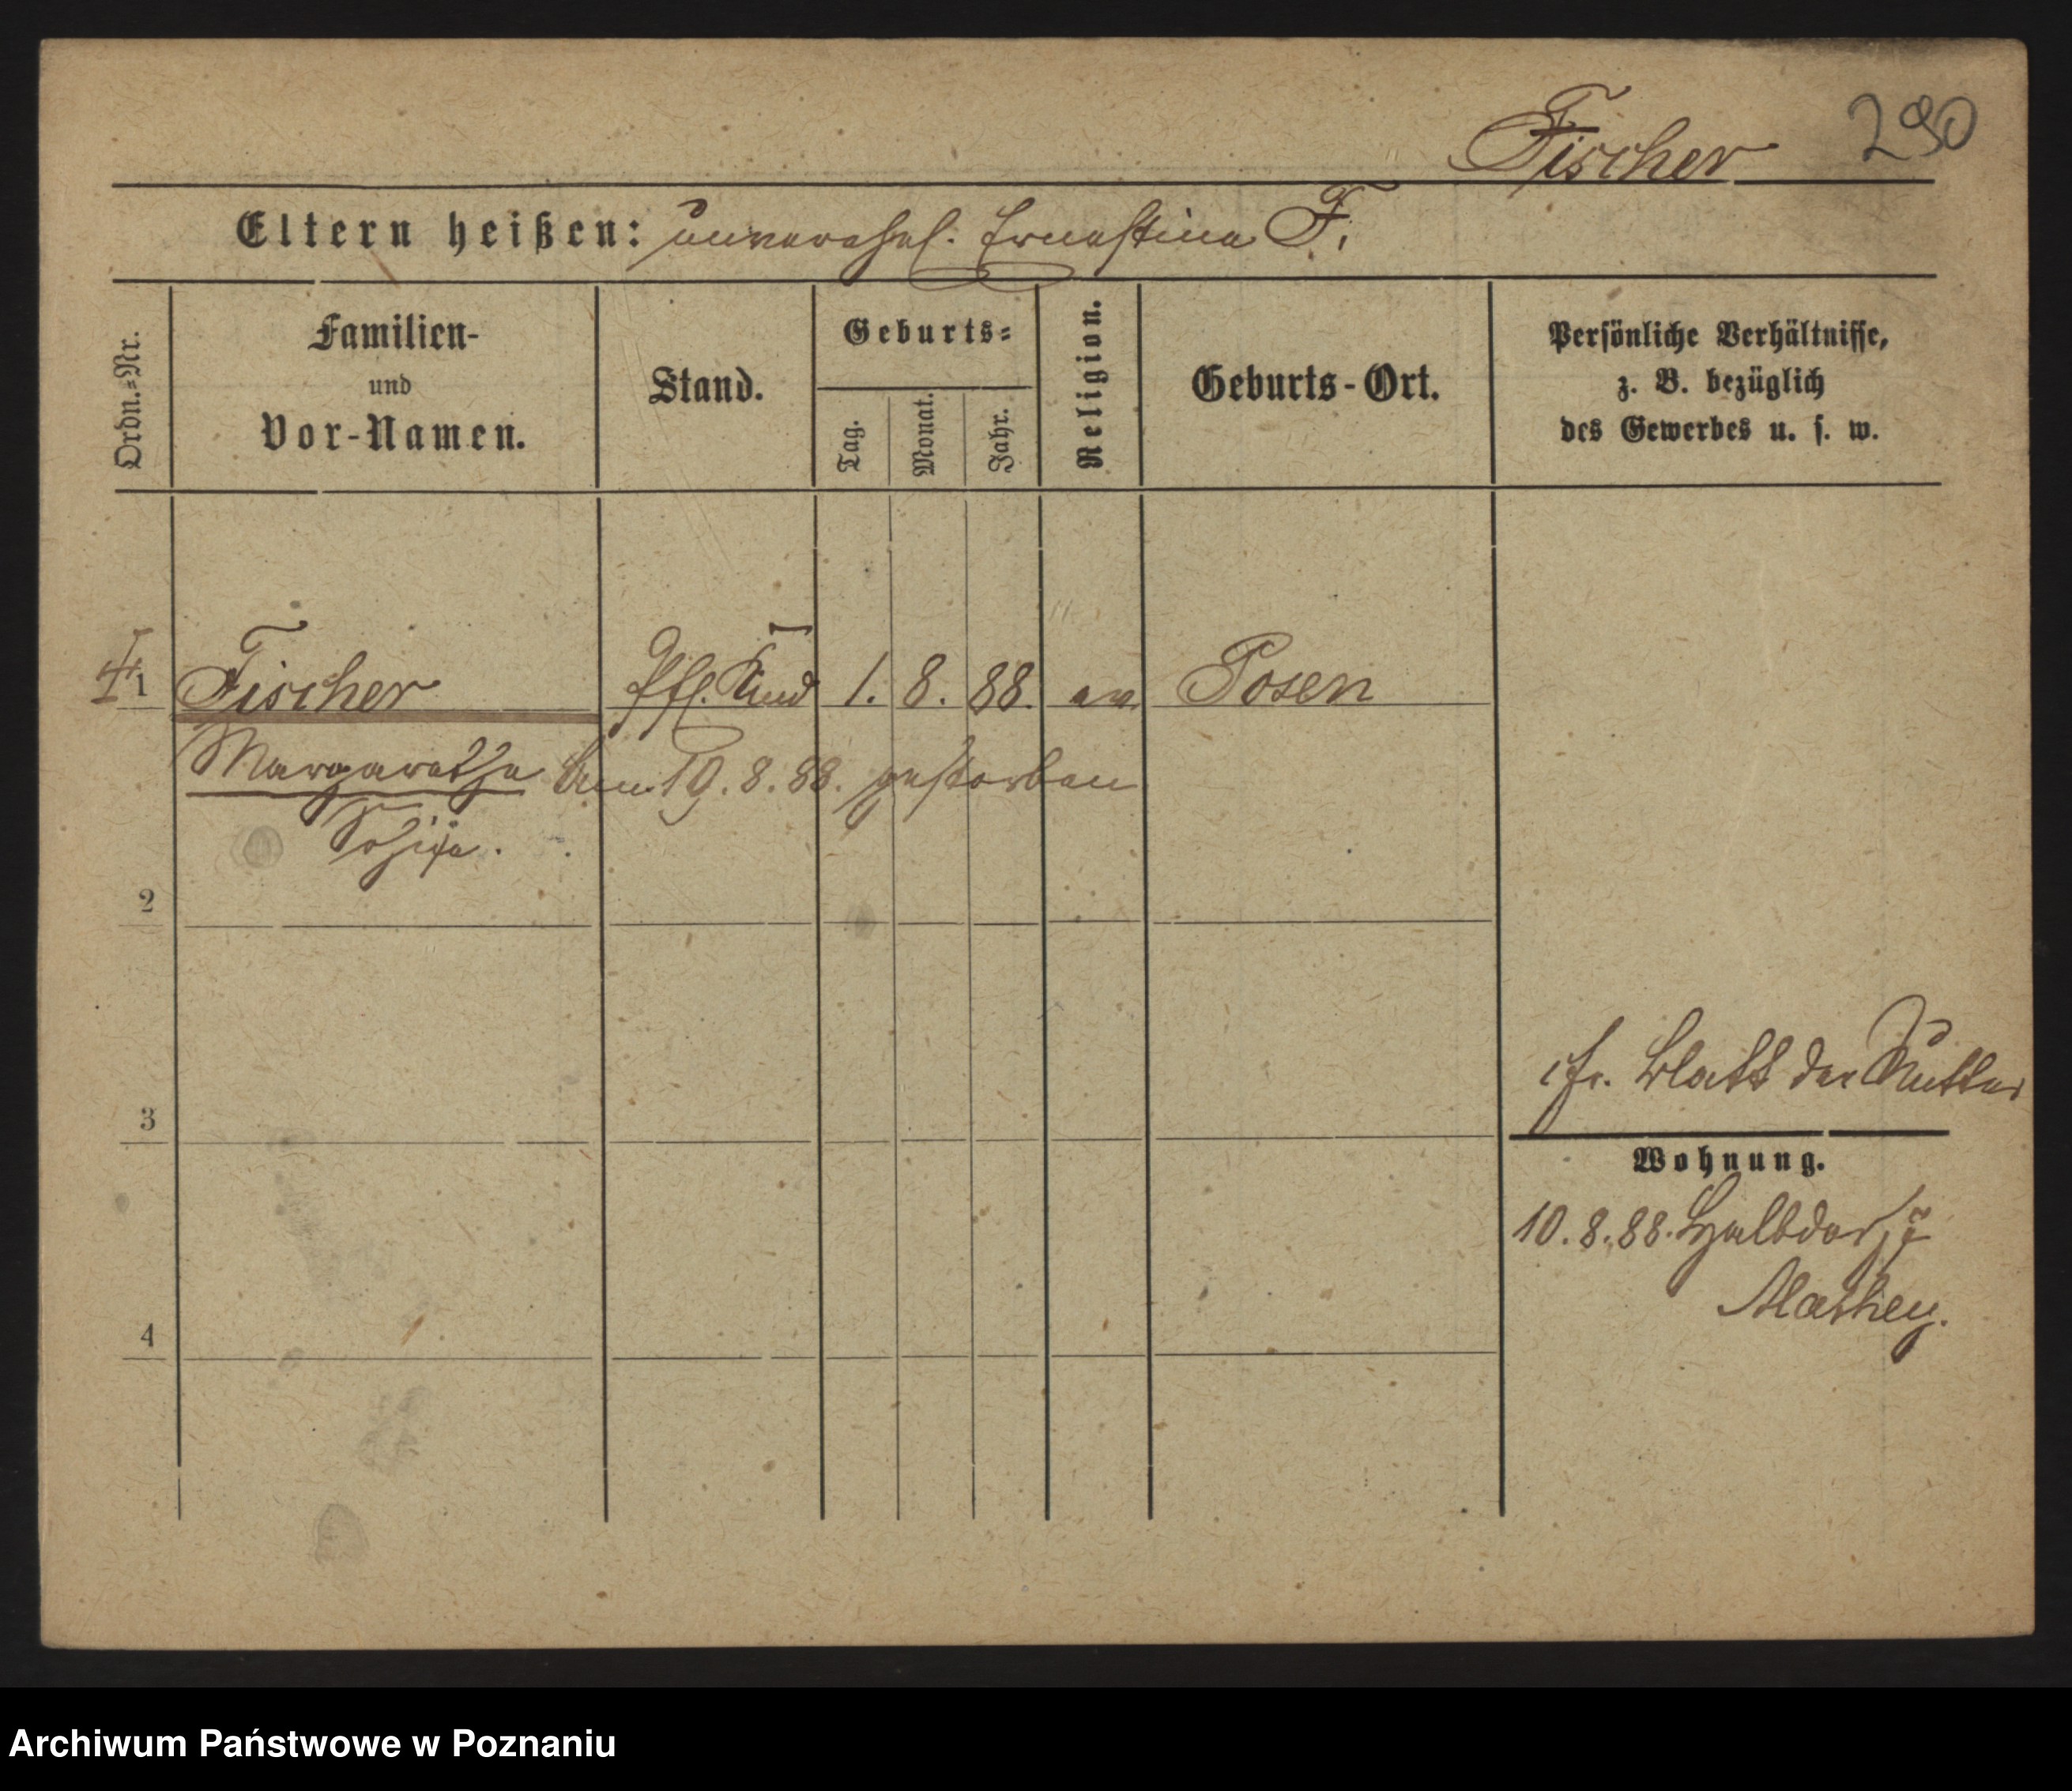 Fischer 290
Eltern heißen: unverehel. Ernestine F.
Ordn.=Nr.
Familien-
und
Vor-Namen.
Stand.
Geburts=
Tag.
Monat.
Jahr.
Religion.
Geburts-Ort.
Persönliche Verhältnisse,
z. B. bezüglich
des Gewerbes u. s. w.
1 Fischer Pfl. Kind 1. 8. 88. ev. Posen
Margarethe Am 19. 8. 88. gestorben
2
3
4
cfr. Blatt der Mutter
Wohnung.
10. 8. 88. Halbdorf
Archiwum Państwowe w Poznaniu